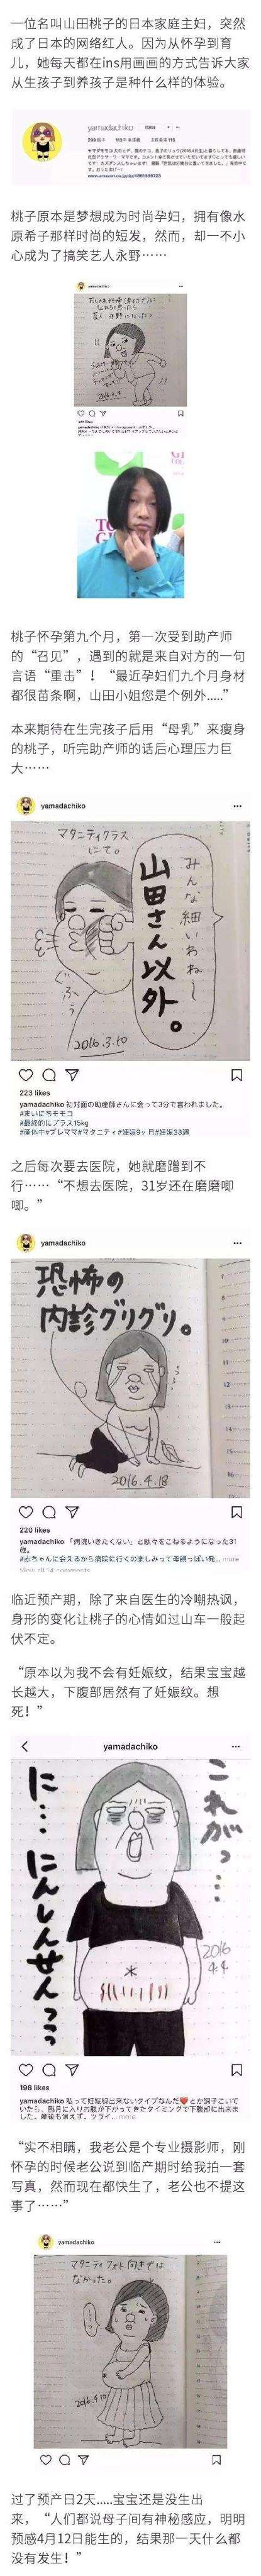 一位名叫山田桃子的日本家庭主妇，突然
成了日本的网络红人。因为从怀孕到育
儿，她每天都在ins用画画的方式告诉大家
从生孩子到养孩子是种什么样的体验。
yamadachiko
桃子原本是梦想成为时尚孕妇，拥有像水
原希子那样时尚的短发，然而，却一不小
心成为了搞笑艺人永野……
桃子怀孕第九个月，第一次受到助产师
的“召见”，遇到的就是来自对方的一句
言语“重击”！“最近孕妇们九个月身材
都很苗条啊，山田小姐您是个例外.....”
本来期待在生完孩子后用“母乳”来瘦身
的桃子，听完助产师的话后心理压力巨
大……
yamadachiko
マタニティクラス
にて。
みんな細いわねー
山田さん以外。
ぐふっ
2016.3.10
223 likes
yamadachiko 初対面の助産師さんに会って3分で言われました。
#まいにちモモコ
#最終的にプラス15kg
#産休中#プレママ#マタニティ#妊娠9ヶ月#妊娠33週
之后每次要去医院，她就磨蹭到不
行……“不想去医院，31岁还在磨磨唧
唧。”
yamadachiko
恐怖の
内診グリグリ。
2016.4.18
220 likes
yamadachiko 「病院いきたくない」と駄々をこねるようになった31
歳。
#赤ちゃんに会えるから病院に行くの楽しみって母親っぽい発... more
临近预产期，除了来自医生的冷嘲热讽，
身形的变化让桃子的心情如过山车一般起
伏不定。
“原本以为我不会有妊娠纹，结果宝宝越
长越大，下腹部居然有了妊娠纹。想
死！”
yamadachiko
これがっ…
に…にんしんせんっっ
2016
4.4
198 likes
yamadachiko 私って妊娠線出来ないタイプなんだ❤とか調子こいて
いたら、臨月に入りお腹が下がってきたタイミングで下腹部に出来ま
した。産後も消えず、ツライ... more
“实不相瞒，我老公是个专业摄影师，刚
怀孕的时候老公说到临产期时给我拍一套
写真，然而现在都快生了，老公也不提这
事了……”
yamadachiko
マタニティフォト向きでは
なかった。
2016.4.10
过了预产日2天.....宝宝还是没生出
来，“人们都说母子间有神秘感应，明明
预感4月12日能生的，结果那一天什么都
没有发生！”